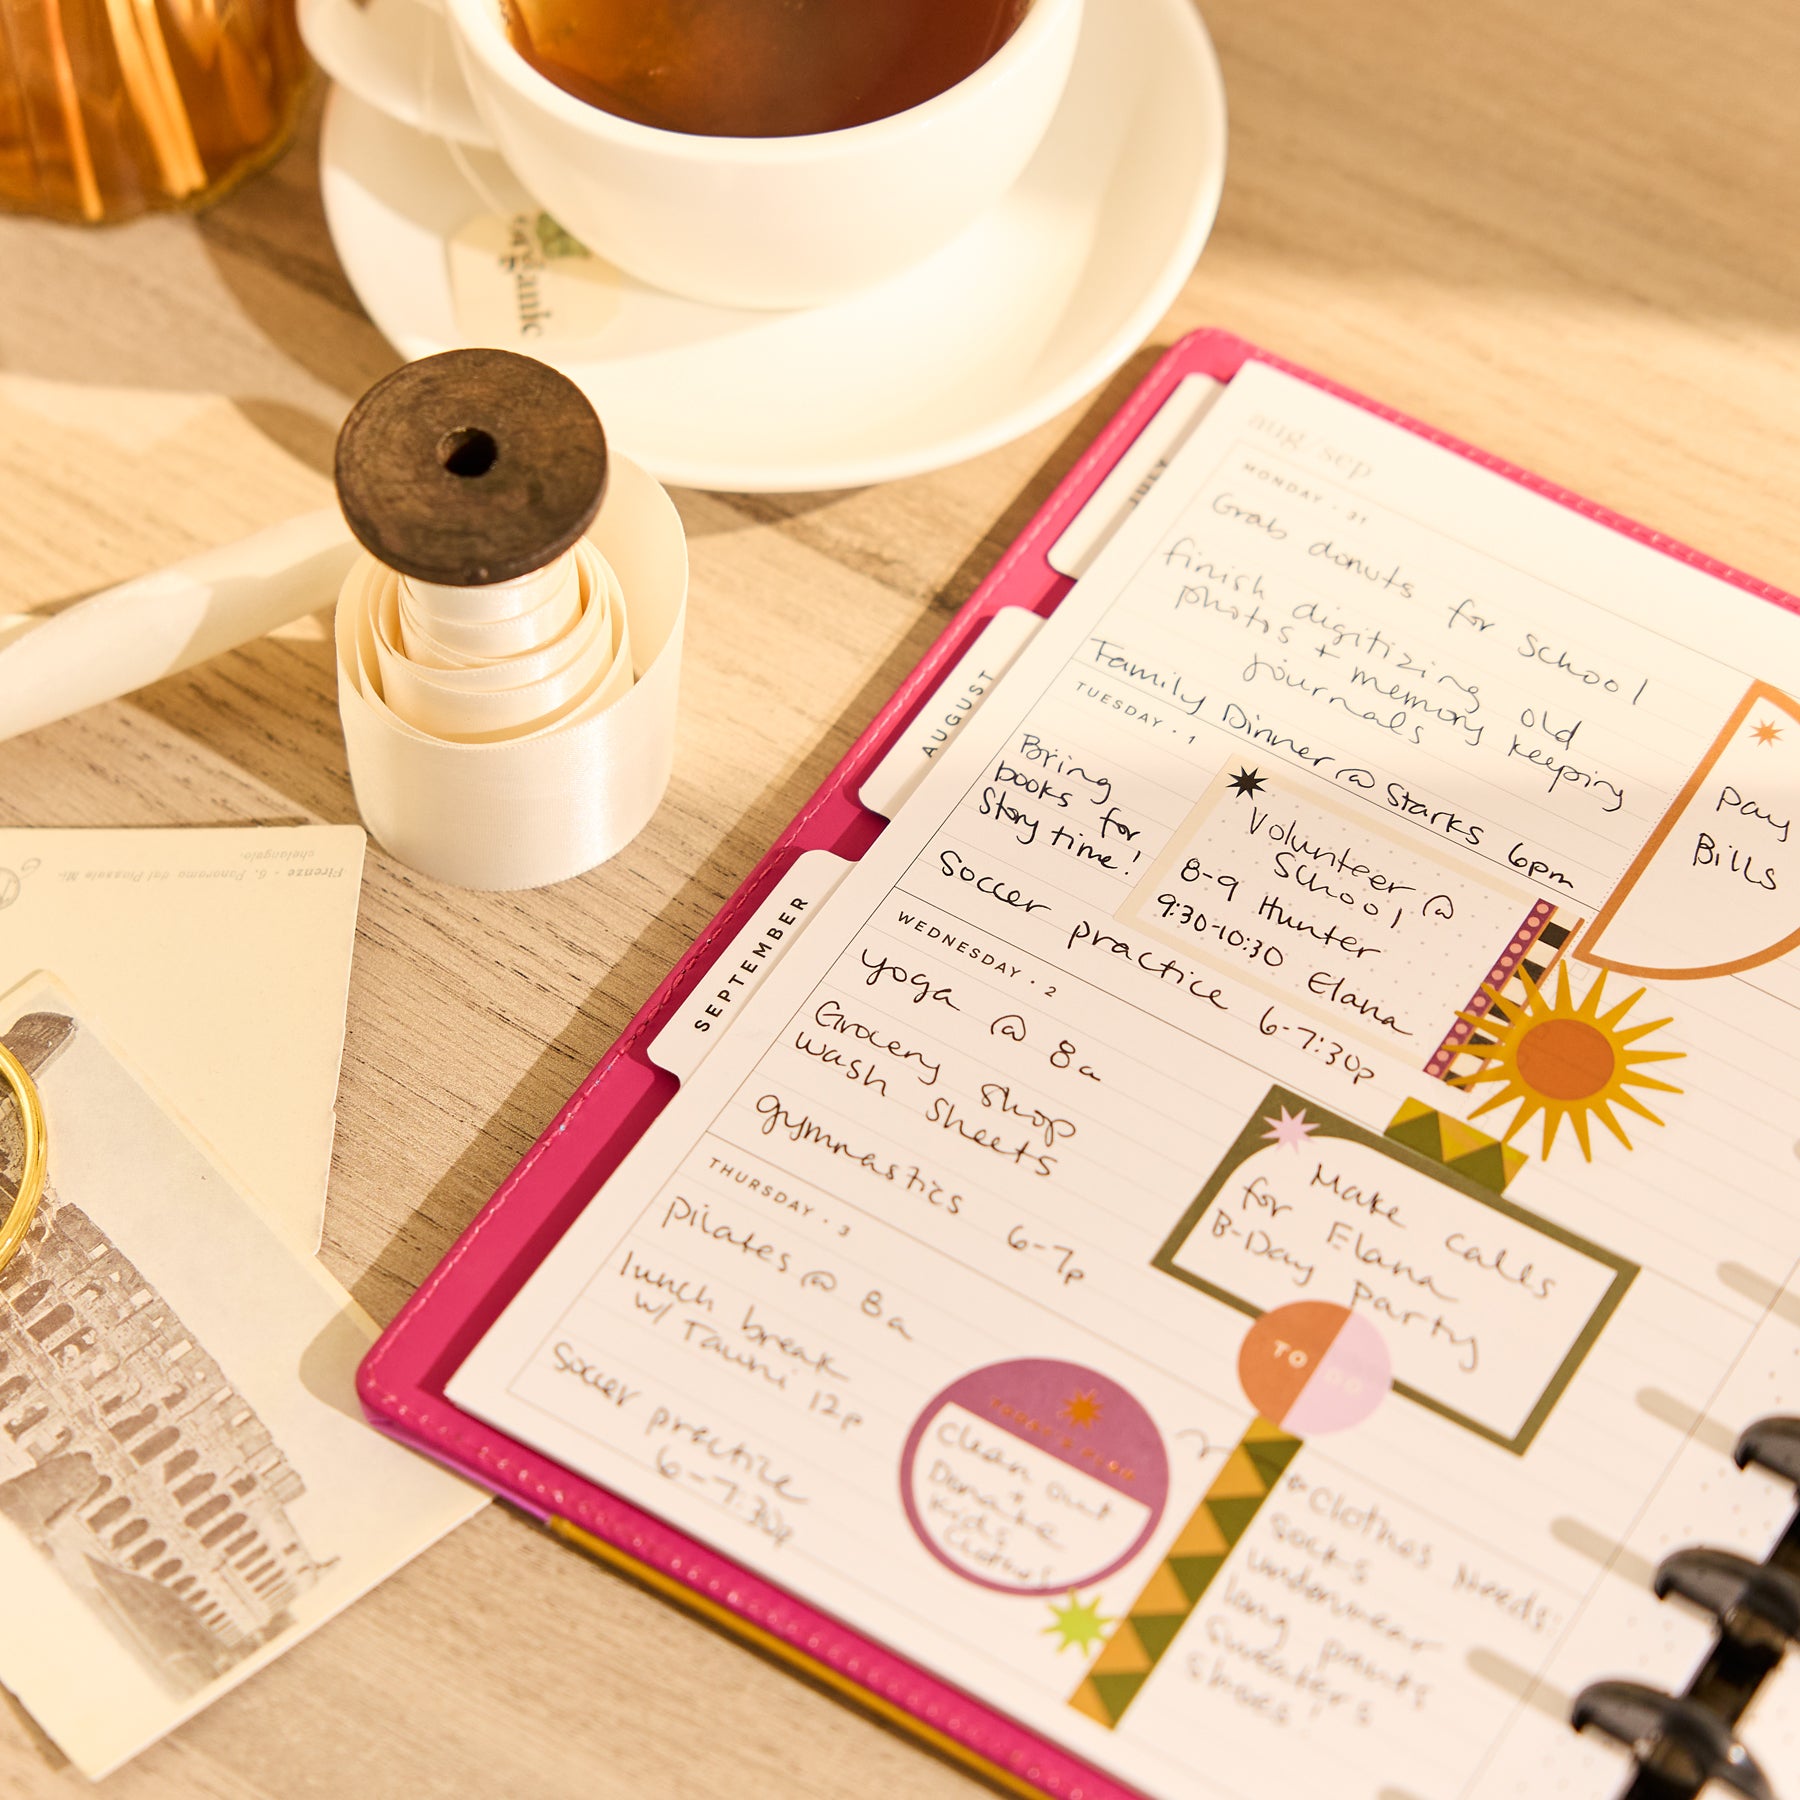 organic
Firenze - 6. Panorama dal Piazzale Mi-
chelangelo.
JULY
AUGUST
SEPTEMBER
aug/sep
MONDAY · 31
Grab donuts for school
finish digitizing old
photos + memory keeping
journals
Family Dinner @ Starks 6pm
TUESDAY · 1
Bring
books for
Story time!
Volunteer @
School
8-9 Hunter
9:30-10:30 Elana
Soccer practice 6-7:30p
Pay
Bills
WEDNESDAY · 2
yoga @ 8a
Grocery Shop
wash sheets
gymnastics 6-7p
Make calls
for Elana
B-Day party
THURSDAY · 3
Pilates @ 8a
lunch break
w/ Tawni 12p
Soccer practice
6-7:30p
TO DO
TODAY'S PLAN
Clean out
+
Donate
kids
Clothes
Clothes Needs:
socks
underwear
long pants
sweaters
shoes!